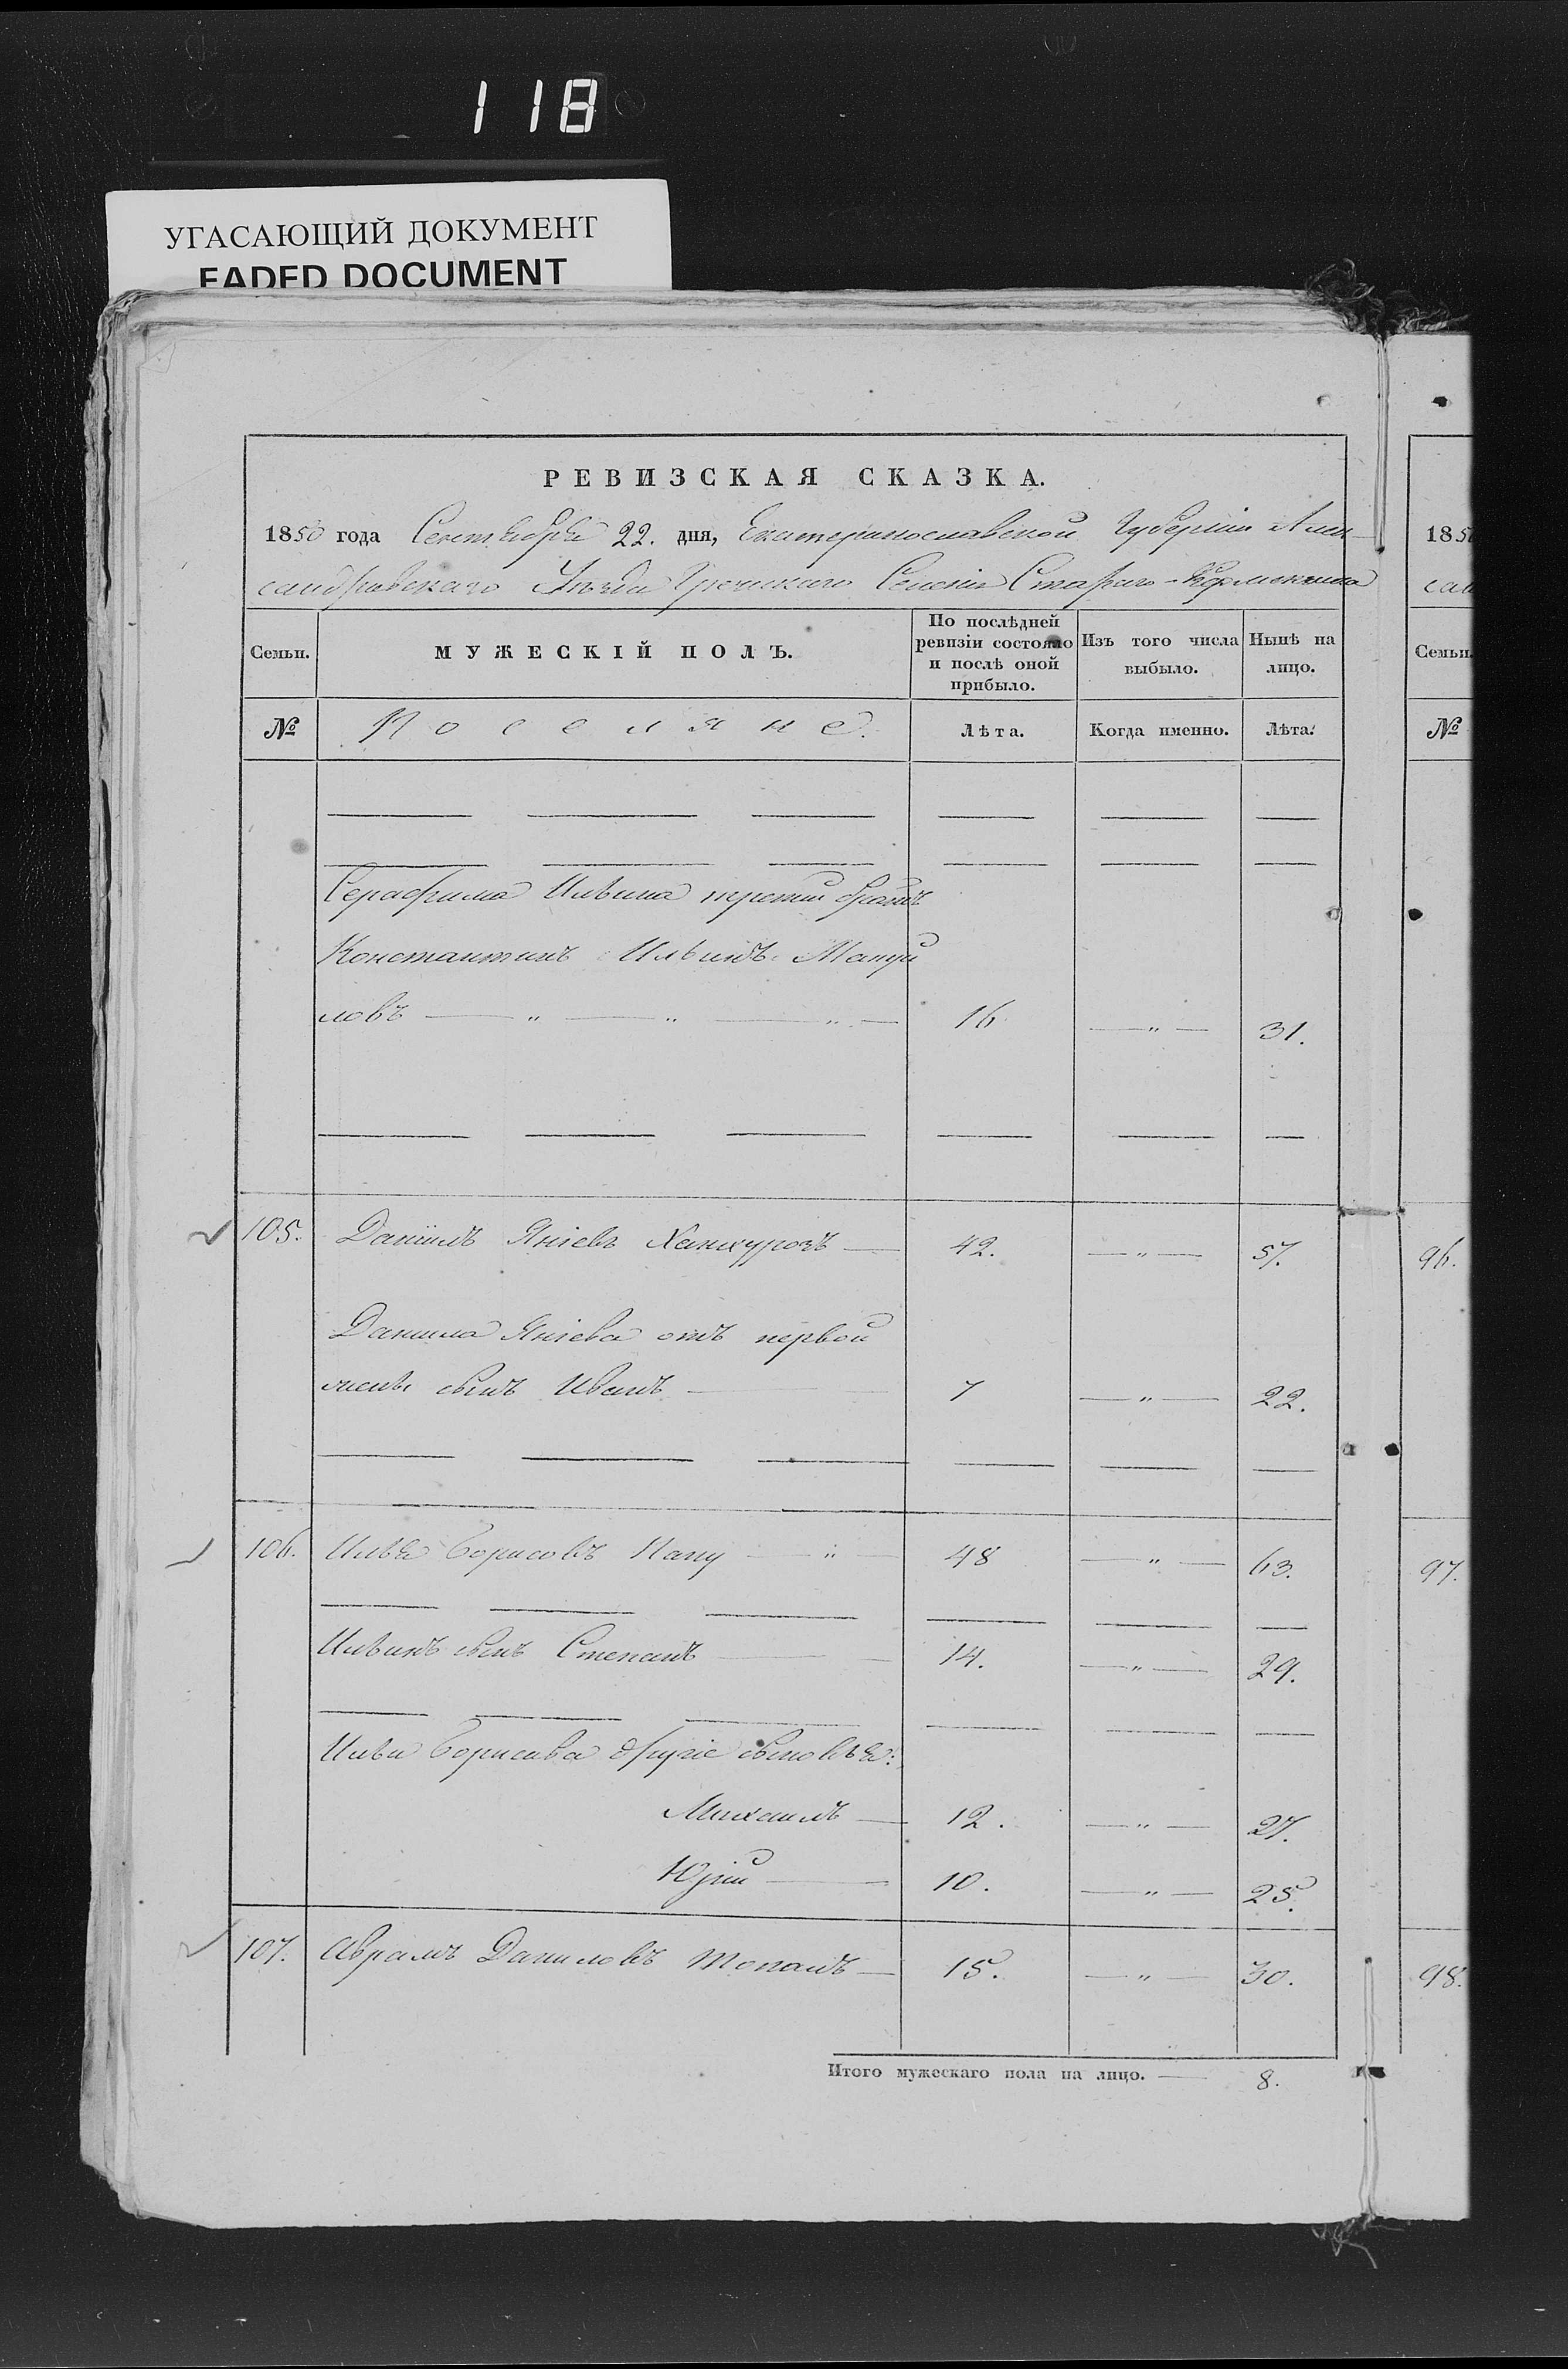 118
УГАСАЮЩИЙ ДОКУМЕНТ
FADED DOCUMENT
РЕВИЗСКАЯ СКАЗКА.
1850 года Сентября 22. дня, Екатеринославской Губерніи Алек
сандровскаго Уѣзда Греческаго Селенія Стараго-
Семьи. МУЖЕСКІЙ ПОЛЪ. По послѣдней ревизіи состояло и послѣ оной прибыло. Изъ того числа выбыло. Нынѣ на лицо.
№ Поселяне. Лѣта. Когда именно. Лѣта.
Серафима Ильина третій братъ
Константинъ Ильинъ Мануй
ловъ — " — " — " — 16 — " — 31.
105. Даніилъ Яніевъ — 42. — " — 57.
Данила Яніева отъ первой
жены сынъ Иванъ — 7 — " — 22.
106. Илья Борисовъ Папу — " — 48 — " — 63.
Ильинъ сынъ Степанъ — 14. — " — 29.
Ильи Борисова другіе сыновья:
Михаилъ — 12. — " — 27.
Юрій — 10. — " — 25.
107. Аврамъ Даниловъ Топалъ — 15. — " — 30.
Итого мужескаго пола на лицо. — 8.
1850
сан
Семьи.
№
96.
97.
98.